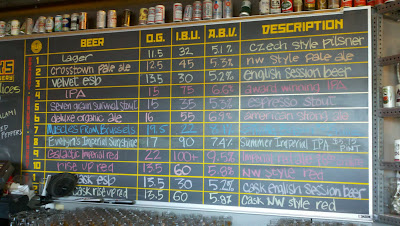 BEER O.G. I.B.U. A.B.V. DESCRIPTION
Lager 11.5 32 5.1% czech style pilsner
2 crosstown pale ale 12.5 45 5.3% nw style pale ale
3 velvet esb 13.5 30 5.2% english session beer
4 IPA 15 75 6.6% award winning IPA
5 seven grain survival stout 15 35 5.3% espresso stout
6 deluxe organic ale 16 55 6.9% american strong ale
7 Muscles From Brussels 19.5 22
8 Evelyn's Imperial Sunshine 17 90 7.4% Summer Imperial IPA
9 ecstactic imperial red 22 100+ 9.5% imperial red ale
10 rise up red 13.5 60 5.8% NW style red
cask esb 13.5 30 5.2% cask english session beer
cask rise up red 13.5 60 5.8% cask NW style red